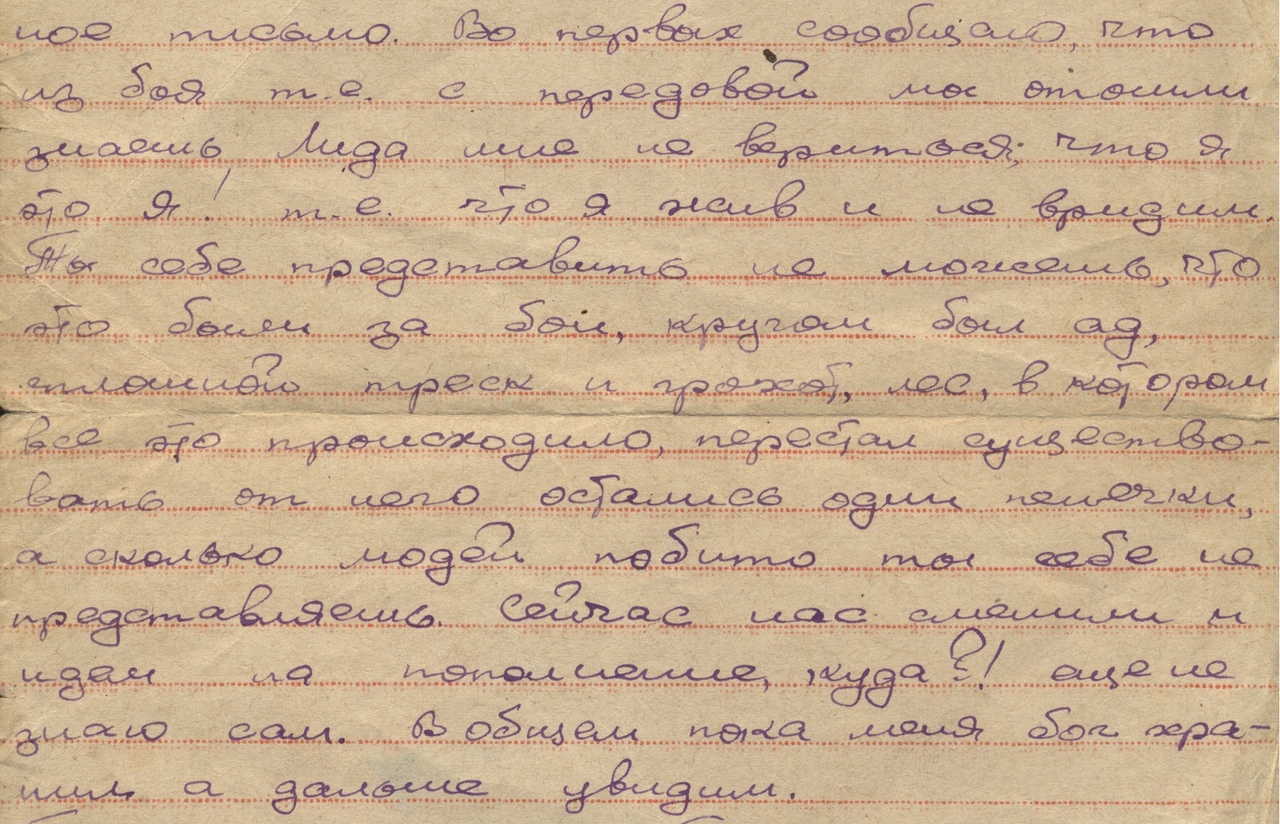 ное письмо. Во первых сообщаю, что
из боя т.е. с передовой мы отошли
знаешь, Лида мне не вериться, что я
это я! т.е. что я жив и не вридим.
Ты себе представить не можешь, что
это были за бои, кругом был ад,
сплошной треск и грохот, лес, в котором
все это происходило, перестал существо-
вать от него остались одни пенечки,
а сколько людей побито ты себе не
представляешь. Сейчас нас сменили и
идем на пополнение, куда?! еще не
знаю сам. В общем пока меня бог хра-
нил а дальше увидим.